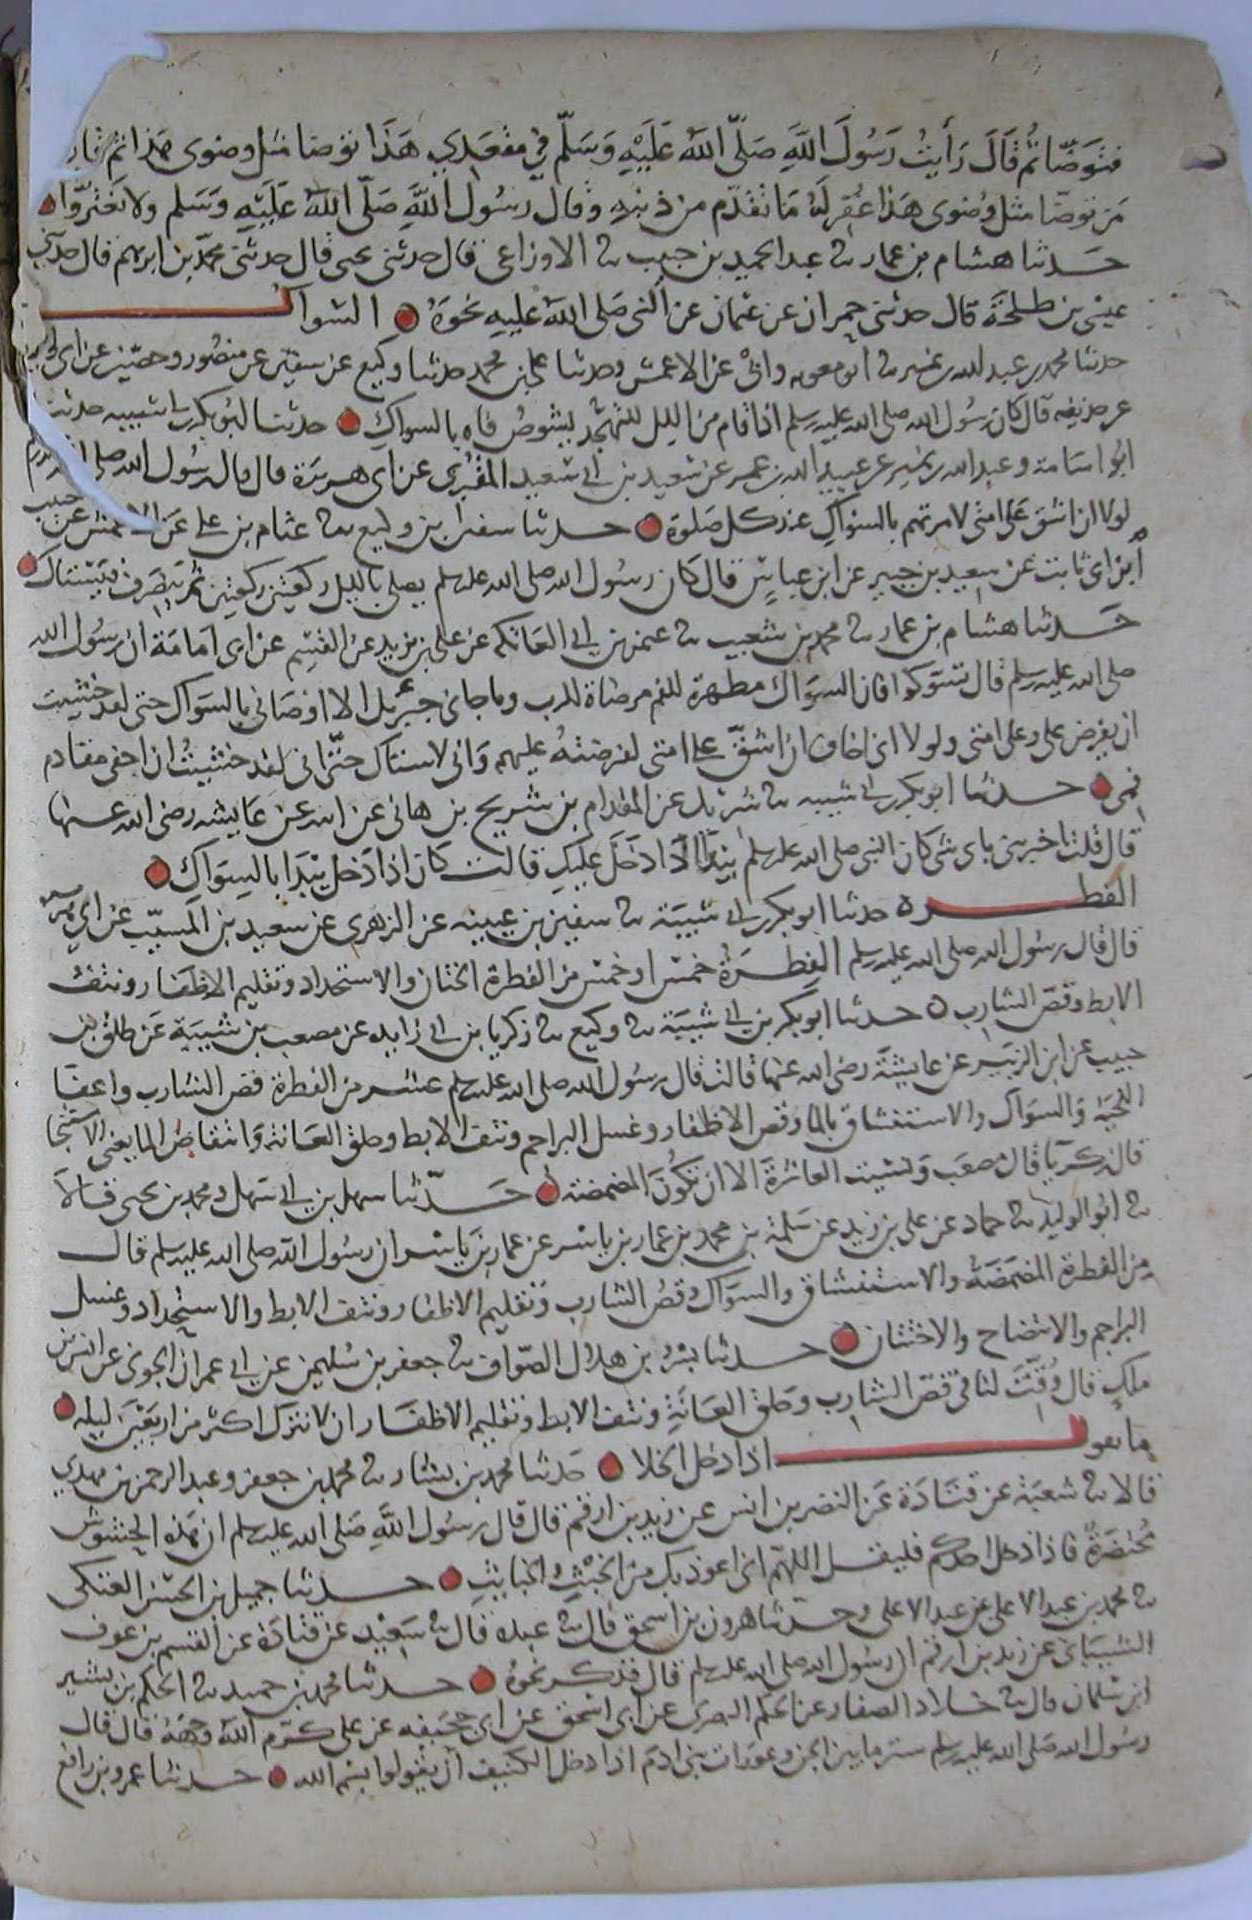 فتوضا ثم قال رأيت رسول الله صلى الله عليه وسلم في مقعدي هذا توضا مثل وضوى هذا ثم قال
من توضا مثل وضوى هذا غفر له ما تقدم من ذنبه وقال رسول الله صلى الله عليه وسلم ولا تغتروا
حدثنا هشام بن عمار ثنا عبد الحميد بن حبيب ثنا الاوزاعى قال حدثنى يحيى قال حدثنى محمد بن ابرهيم قال حدثنى
عيسى بن طلحة قال حدثنى حمران عن عثمان عن النبى صلى الله عليه نحوه السواك
حدثنا محمد بن عبد الله بن نمير ثنا ابو معويه وابى عن الاعمش وحدثنا على بن محمد حدثنا وكيع عن سفين عن منصور وحصين عن ابى وايل
عن حذيفه قال كان رسول الله صلى الله عليه وسلم اذا قام من الليل للتهجد يشوص فاه بالسواك حدثنا ابو بكر بن ابى شيبه حدثنا
ابو اسامة وعبد الله بن نمير عن عبيد الله بن عمر عن سعيد بن ابى سعيد المقبرى عن ابى هريرة قال قال رسول الله صلى الله عليه وسلم
لولا ان اشق على امتى لامرتهم بالسواك عند كل صلوة حدثنا سفين بن وكيع ثنا عثام بن على عن الاعمش عن حبيب
ابن ابى ثابت عن سعيد بن جبير عن ابن عباس قال كان رسول الله صلى الله عليه وسلم يصلى بالليل ركعتين ركعتين ثم ينصرف فيستاك
حدثنا هشام بن عمار ثنا محمد بن شعيب ثنا عثمن بن ابى العاتكه عن على بن يزيد عن القسم عن ابى امامة ان رسول الله
صلى الله عليه وسلم قال تسوكوا فان السواك مطهرة للفم مرضاة للرب وما جانى جبرئيل الا اوصانى بالسواك حتى لقد خشيت
ان يفرض على وعلى امتى ولولا انى اخاف ان اشق على امتى لفرضته عليهم وانى لاستاك حتى انى لقد خشيت ان احفى مقادم
فمى حدثنا ابو بكر بن ابى شيبه ثنا شريك عن المقدام بن شريح بن هانى عن ابيه عن عايشه رضى الله عنها
قال قلت اخبرينى باى شى كان النبى صلى الله عليه وسلم يبدا اذا دخل عليك قالت كان اذا دخل يبدا بالسواك
الفطره حدثنا ابو بكر بن ابى شيبة ثنا سفين بن عيينه عن الزهرى عن سعيد بن المسيب عن ابى هريرة
قال قال رسول الله صلى الله عليه وسلم الفطرة خمس او خمس من الفطرة الختان والاستحداد وتقليم الاظفار ونتف
الابط وقص الشارب حدثنا ابو بكر بن ابى شيبة ثنا وكيع ثنا زكريا بن ابى زايده عن مصعب بن شيبة عن طلق بن
حبيب عن ابن الزبير عن عايشة رضى الله عنها قالت قال رسول الله صلى الله عليه وسلم عشر من الفطرة قص الشارب واعفا
اللحية والسواك والاستنشاق بالما وقص الاظفار وغسل البراجم ونتف الابط وحلق العانة وانتقاص الما يعنى الاستنجا
قال زكريا قال مصعب ونسيت العاشرة الا ان تكون المضمضه حدثنا سهل بن ابى سهل ومحمد بن يحيى قالا
ثنا ابو الوليد ثنا حماد عن على بن زيد عن سلمة بن محمد بن عمار بن ياسر عن عمار بن ياسر ان رسول الله صلى الله عليه وسلم قال
من الفطرة المضمضة والاستنشاق والسواك وقص الشارب وتقليم الاظفار ونتف الابط والاستحداد وغسل
البراجم والانتضاح والاختتان حدثنا بشر بن هلال الصواف ثنا جعفر بن سليمن عن ابى عمران الجونى عن انس بن
ملك قال وقت لنا فى قص الشارب وحلق العانة ونتف الابط وتقليم الاظفار ان لا نترك اكثر من اربعين ليله
ما يقول اذا دخل الخلا حدثنا محمد بن بشار ثنا محمد بن جعفر وعبد الرحمن بن مهدي
قالا ثنا شعبة عن قتادة عن النضر بن انس عن زيد بن ارقم قال قال رسول الله صلى الله عليه وسلم ان هذه الحشوش
محتضرة فاذا دخل احدكم فليقل اللهم انى اعوذ بك من الخبث والخبايث حدثنا جميل بن الحسن العتكى
ثنا محمد بن عبد الاعلى عن عبد الاعلى وحدثنا هرون بن اسحق قال ثنا عبده قال ثنا سعيد عن قتادة عن القسم بن عوف
الشيبانى عن زيد بن ارقم ان رسول الله صلى الله عليه وسلم قال فذكر نحوه حدثنا محمد بن حميد ثنا الحكم بن بشير
ابن سلمان قال ثنا خلاد الصفار عن الحكم البصرى عن ابى اسحق عن ابى جحيفه عن على كرم الله وجهه قال قال
رسول الله صلى الله عليه وسلم ستر ما بين الجن وعورات بنى ادم اذا دخل الكنيف ان يقولوا بسم الله حدثنا عمرو بن رافع